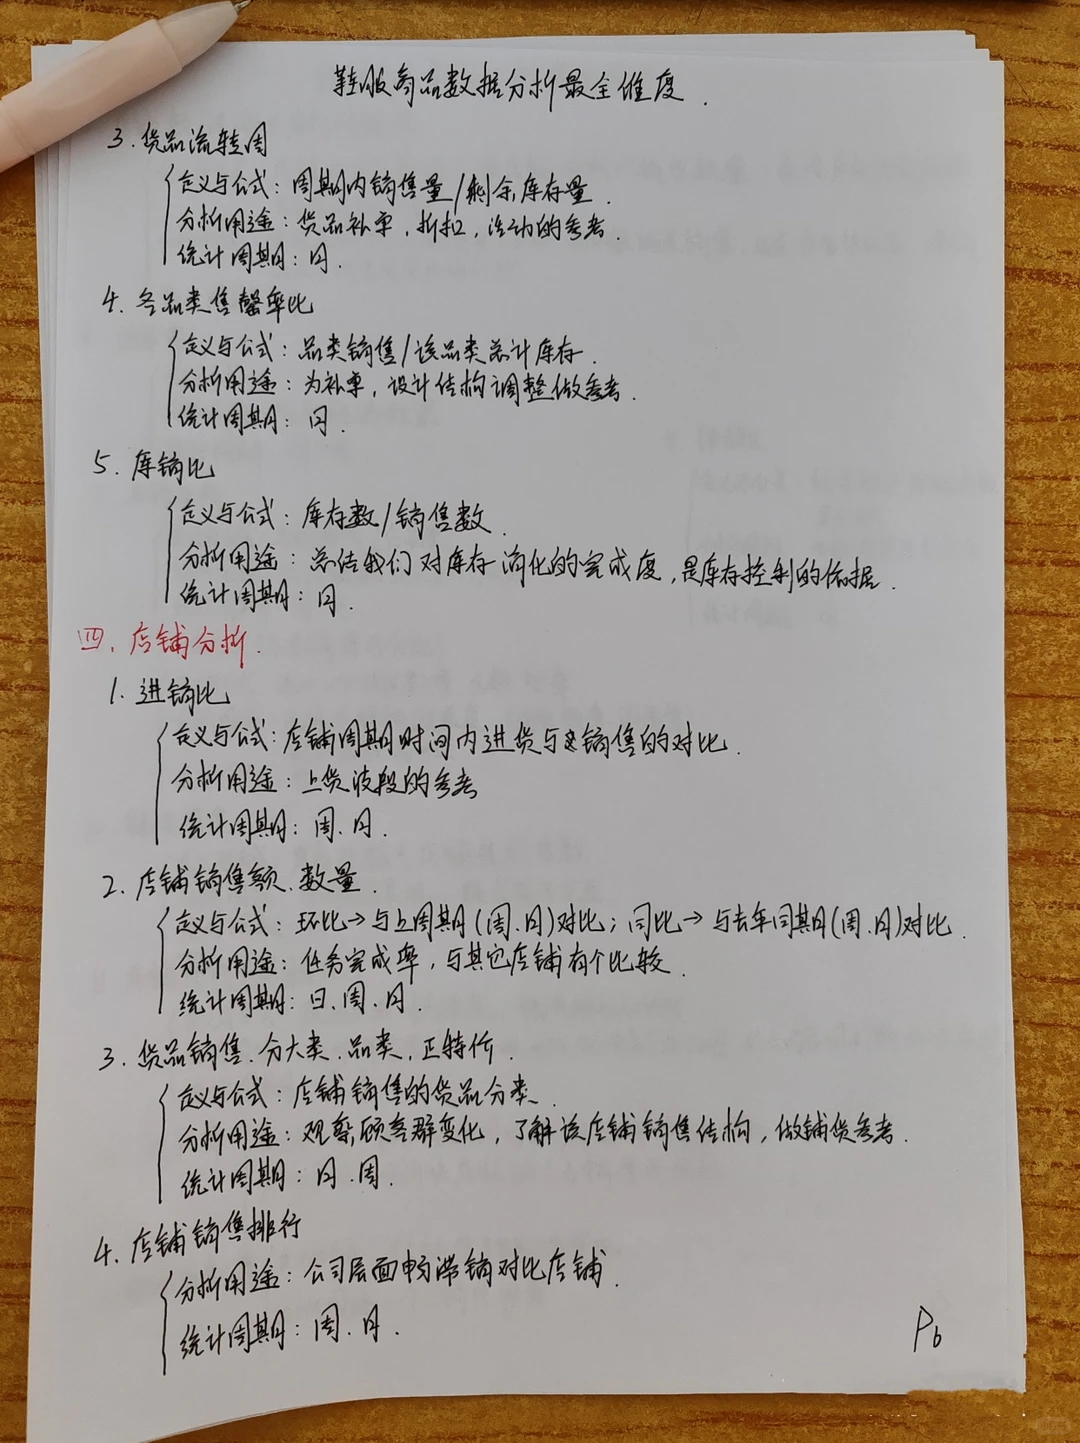 鞋服商品数据分析最全维度.
3. 货品流转周
定义与公式: 周期内销售量/剩余库存量.
分析用途: 货品补单, 折扣, 活动的参考.
统计周期: 月.
4. 各品类售罄率比
定义与公式: 品类销售/该品类总计库存.
分析用途: 为补单, 设计结构调整做参考.
统计周期: 月.
5. 库销比
定义与公式: 库存数/销售数.
分析用途: 总结我们对库存消化的完成度, 是库存控制的依据.
统计周期: 月.
四. 店铺分析.
1. 进销比
定义与公式: 店铺周期时间内进货与销售的对比.
分析用途: 上货波段的参考
统计周期: 周、月.
2. 店铺销售额、数量.
定义与公式: 环比→与上周期(周、月)对比; 同比→与去年同期(周、月)对比.
分析用途: 任务完成率, 与其它店铺有个比较.
统计周期: 日、周、月.
3. 货品销售、分大类、品类、正特价.
定义与公式: 店铺销售的货品分类.
分析用途: 观察顾客群变化, 了解该店铺销售结构, 做铺货参考.
统计周期: 月、周.
4. 店铺销售排行
分析用途: 公司层面畅滞销对比店铺.
统计周期: 周、月.
P6